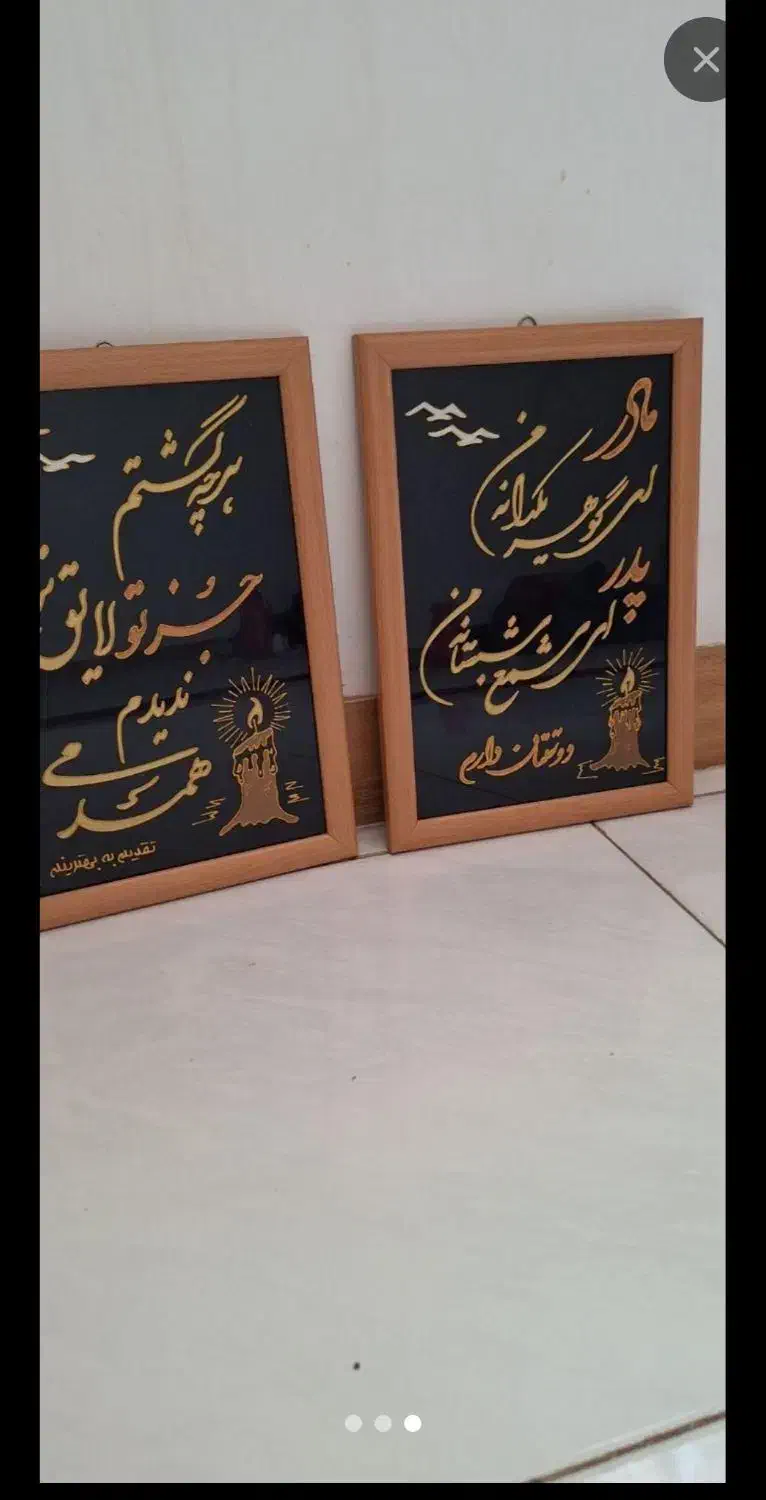 مادر
ای گوهر یکدانه من
پدر
ای شمع شبستانه من
دوستتان دارم
هرچه گشتم
جُز تو لایق
ندیدم
همدمی
تقدیم به بهترینم